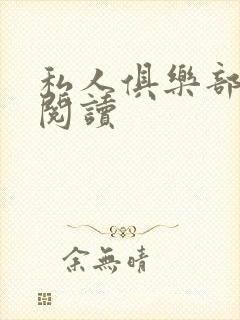 私人俱樂部
閱讀
余無晴